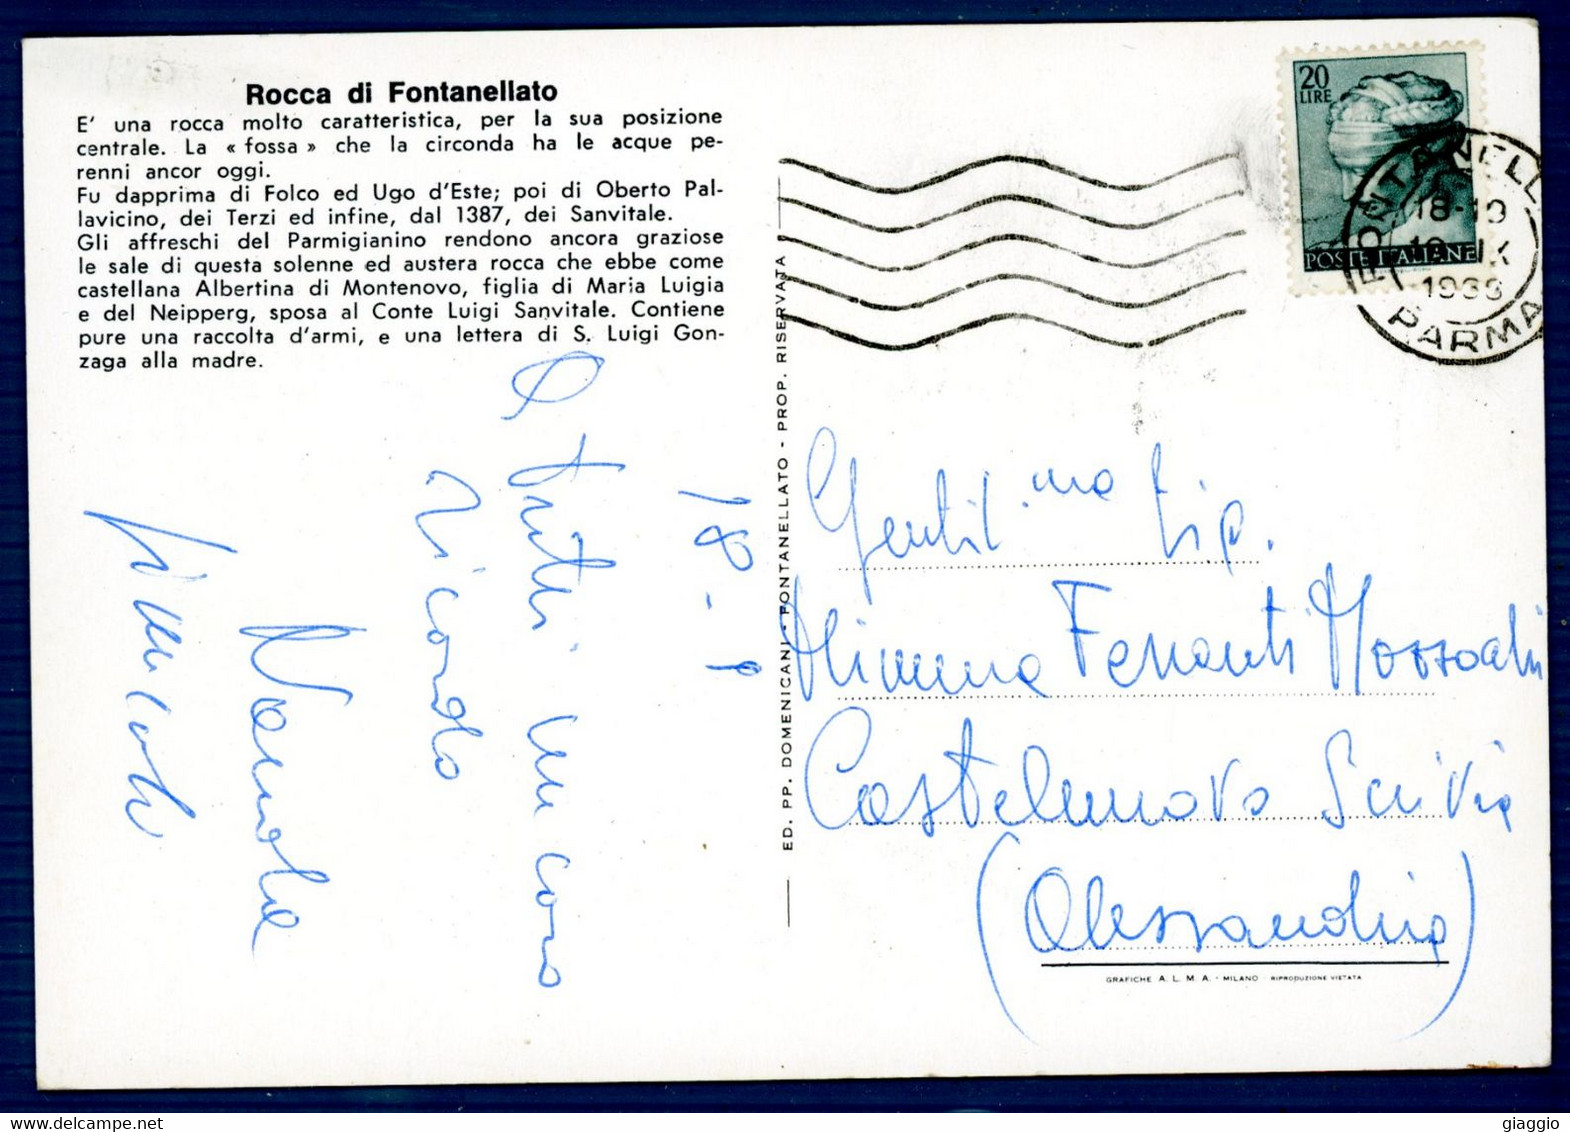 Rocca di Fontanellato
E' una rocca molto caratteristica, per la sua posizione
centrale. La « fossa » che la circonda ha le acque pe-
renni ancor oggi.
Fu dapprima di Folco ed Ugo d'Este; poi di Oberto Pal-
lavicino, dei Terzi ed infine, dal 1387, dei Sanvitale.
Gli affreschi del Parmigianino rendono ancora graziose
le sale di questa solenne ed austera rocca che ebbe come
castellana Albertina di Montenovo, figlia di Maria Luigia
e del Neipperg, sposa al Conte Luigi Sanvitale. Contiene
pure una raccolta d'armi, e una lettera di S. Luigi Gon-
zaga alla madre.
18-9
A tutti un caro
ricordo
ED. PP. DOMENICANI - FONTANELLATO - PROP. RISERVATA
20
LIRE
POSTE ITALIANE
18-19
PARMA
Gentil.ma Sig.
Mimma Ferranti
Castelnuovo Scrivia
(Alessandria)
GRAFICHE A. L. M. A. - MILANO - RIPRODUZIONE VIETATA
giaggio